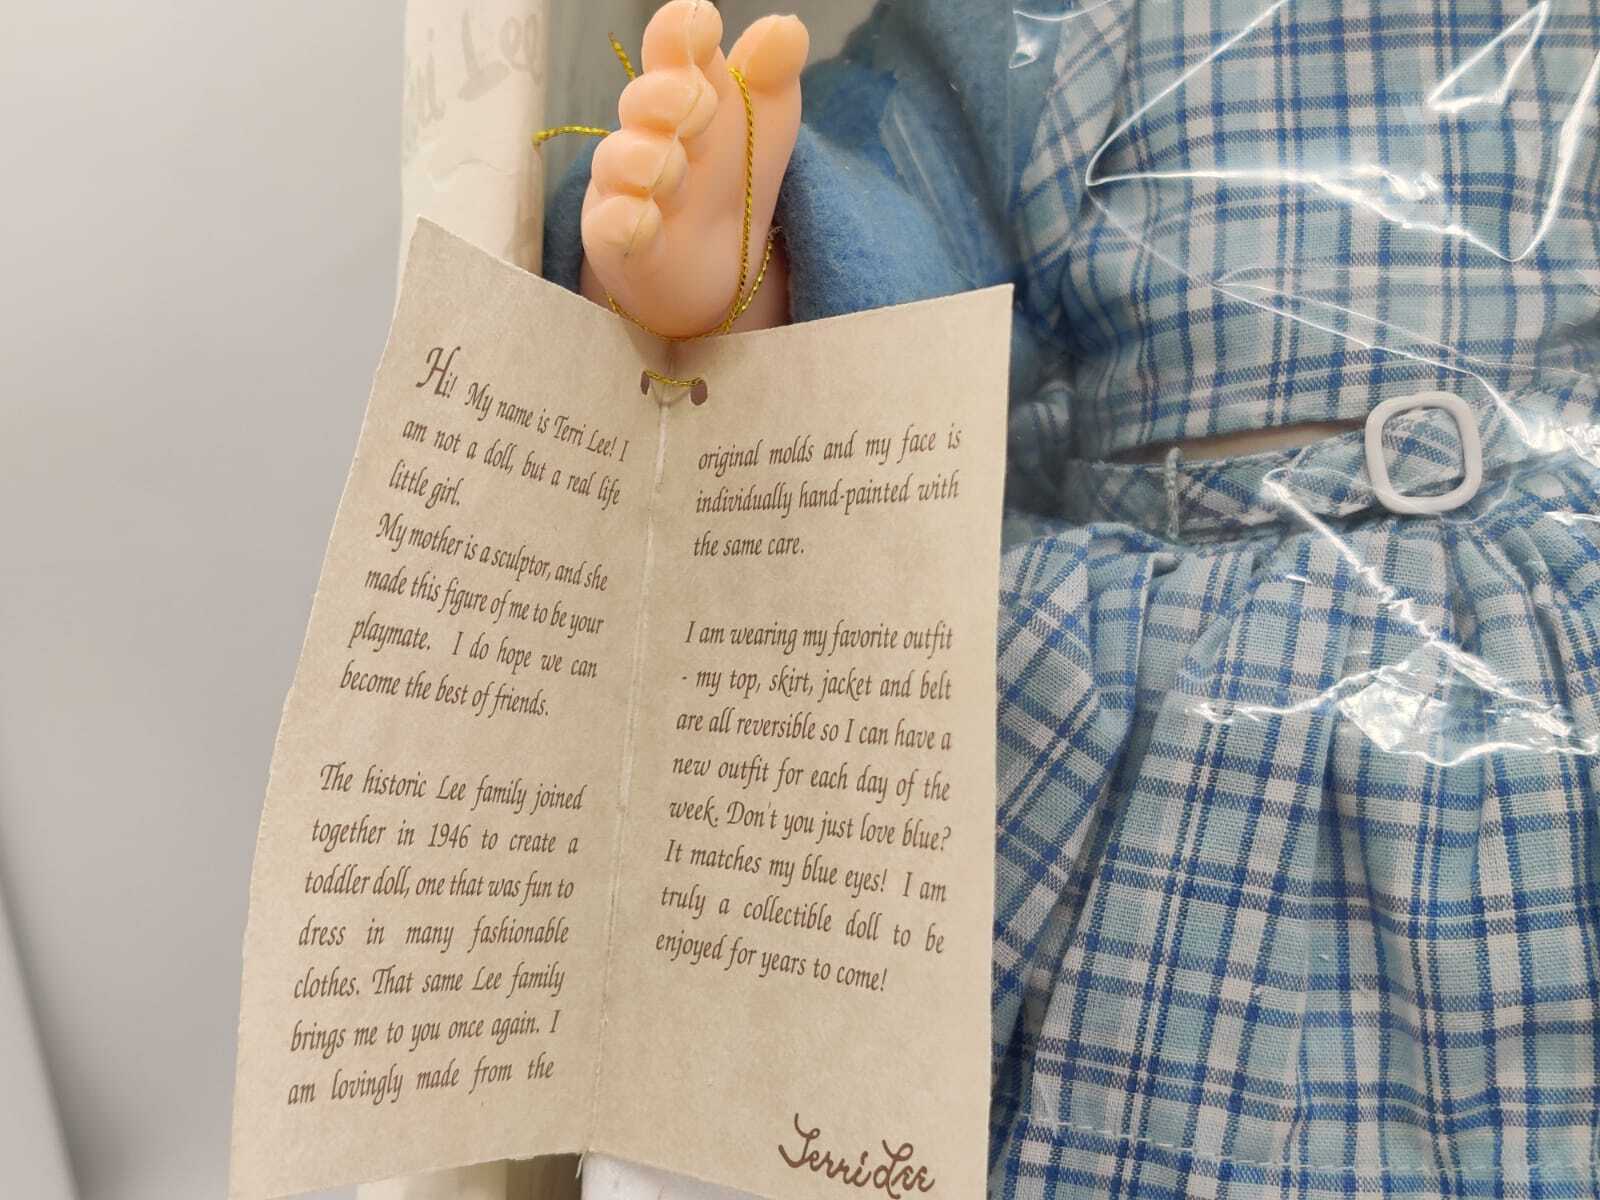 ri Lee
Hi! My name is Terri Lee! I
am not a doll, but a real life
little girl.
My mother is a sculptor, and she
made this figure of me to be your
playmate. I do hope we can
become the best of friends.
The historic Lee family joined
together in 1946 to create a
toddler doll, one that was fun to
dress in many fashionable
clothes. That same Lee family
brings me to you once again. I
am lovingly made from the
original molds and my face is
individually hand-painted with
the same care.
I am wearing my favorite outfit
- my top, skirt, jacket and belt
are all reversible so I can have a
new outfit for each day of the
week. Don't you just love blue?
It matches my blue eyes! I am
truly a collectible doll to be
enjoyed for years to come!
Terri Lee